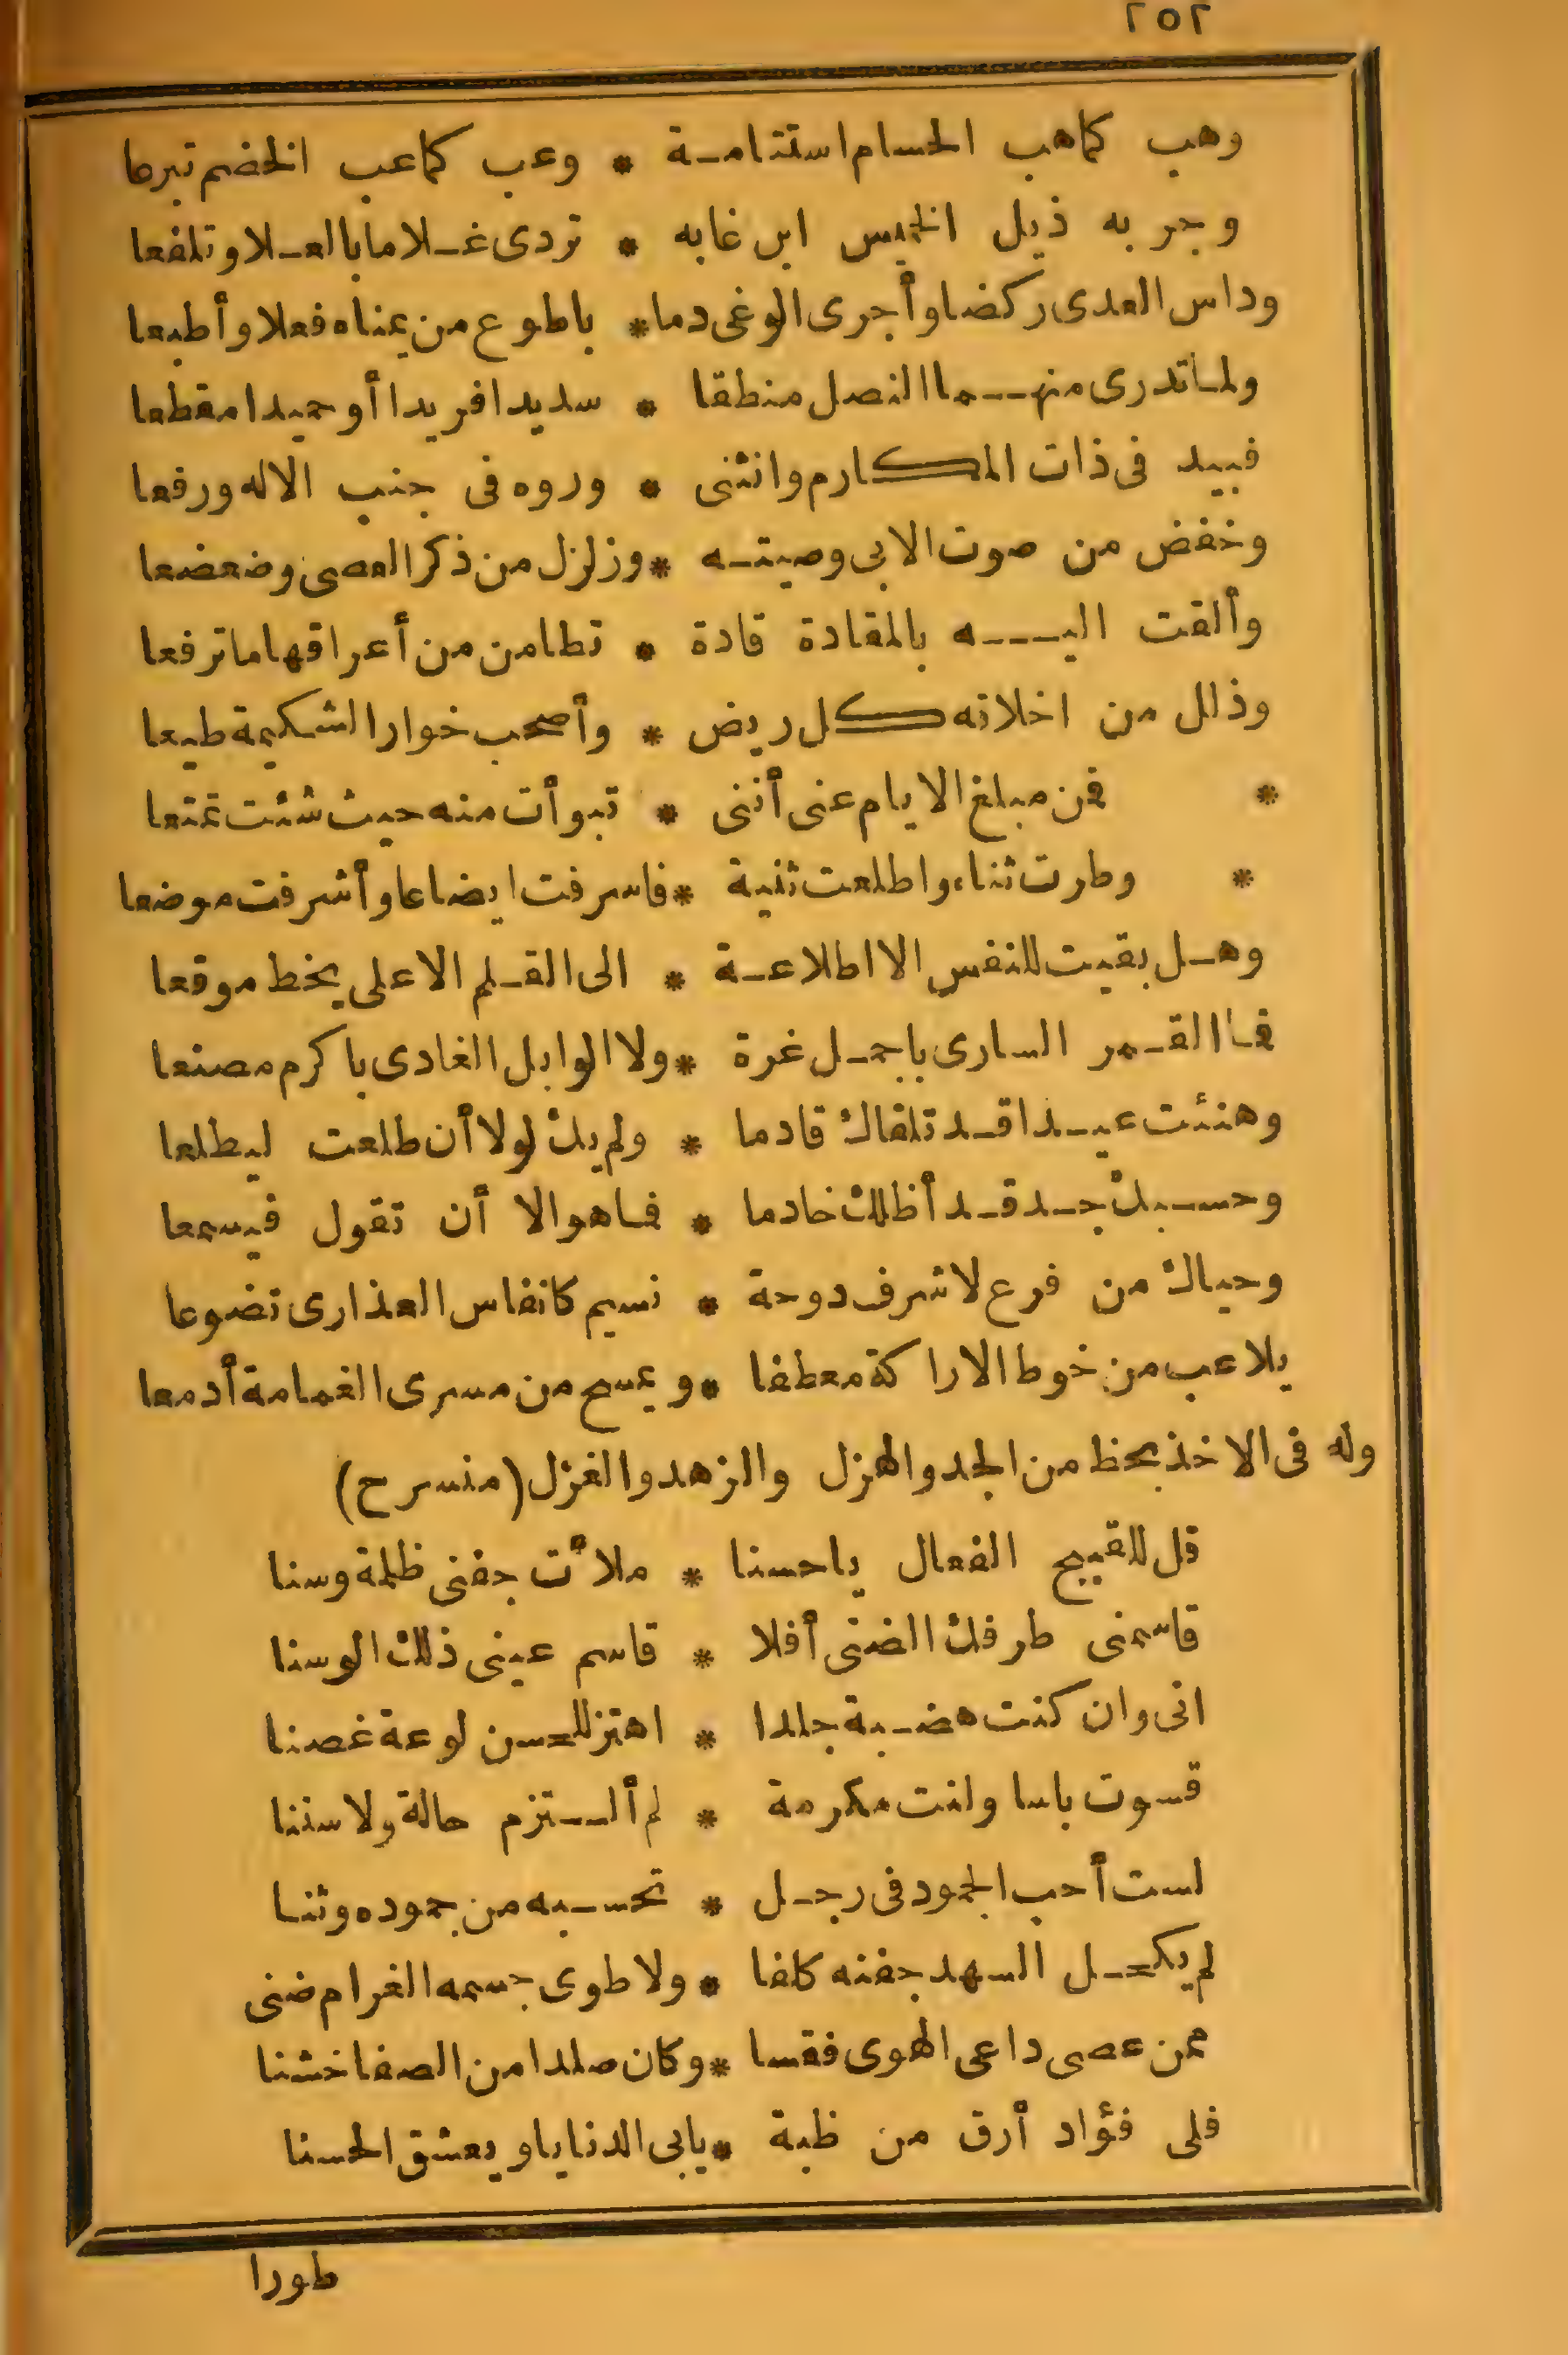 ٢٥٢
وهب كماهب الحسام استنامة * وعب كماعب الخضم تبرعا
وجر به ذيل الخميس ابن غابه * تردى غلاما بالعلا وتلفعا
وداس العدى ركضا وأجرى الوغى دما * باطوع من يمناه فعلا وأطبعا
ولما تدرى منهما النصل منطقا * سديدا فريدا أو حميدا مقطعا
فبيد فى ذات المكارم وانثنى * وروه فى جنب الاله ورفعا
وخفض من صوت الابى وصيته * وزلزل من ذكر العصى وضعضعا
وألقت اليه بالمقادة قادة * تطامن من أعراقها ما ترفعا
وذلل من اخلاته كل ريض * وأصحب خوار الشكيمة طيعا
* فمن مبلغ الايام عنى أننى * تبوأت منه حيث شئت تمتعا
* وطرت ثناء واطلعت ثنية * فاسرفت ايضاعا وأشرفت موضعا
وهل بقيت للنفس الا اطلاعة * الى القلم الاعلى يخط موقعا
فما القمر السارى باجمل غرة * ولا الوابل الغادى باكرم مصنعا
وهنئت عيدا قد تلقاك قادما * ولم يك لولا أن طلعت ليطلعا
وحسبك جد قد أظلك خادما * فما هو الا أن تقول فيسمعا
وحياك من فرع لاشرف دوحة * نسيم كانفاس العذارى تضوعا
يلاعب من خوط الاراكة معطفا * ويمسح من مسرى الغمامة أدمعا
وله فى الاخذ بحظ من الجد والهزل والزهد والغزل (منسرح)
قل للقبيح الفعال ياحسنا * ملأت جفنى ظلمة وسنا
قاسمنى طرفك الضنى أفلا * قاسم عينى ذلك الوسنا
انى وان كنت هضبة جلدا * اهتز للحسن لوعة غصنا
قسوت باسا ولنت مكرمة * لم ألتزم حالة ولا سننا
لست أحب الجمود فى رجل * تحسبه من جموده وثنا
لم يكحل السهد جفنه كلفا * ولا طوى جسمه الغرام ضنى
ممن عصى داعى الهوى فقسا * وكان صلدا من الصفا خشنا
فلى فؤاد أرق من ظبة * يابى الدنايا ويعشق الحسنا
طورا